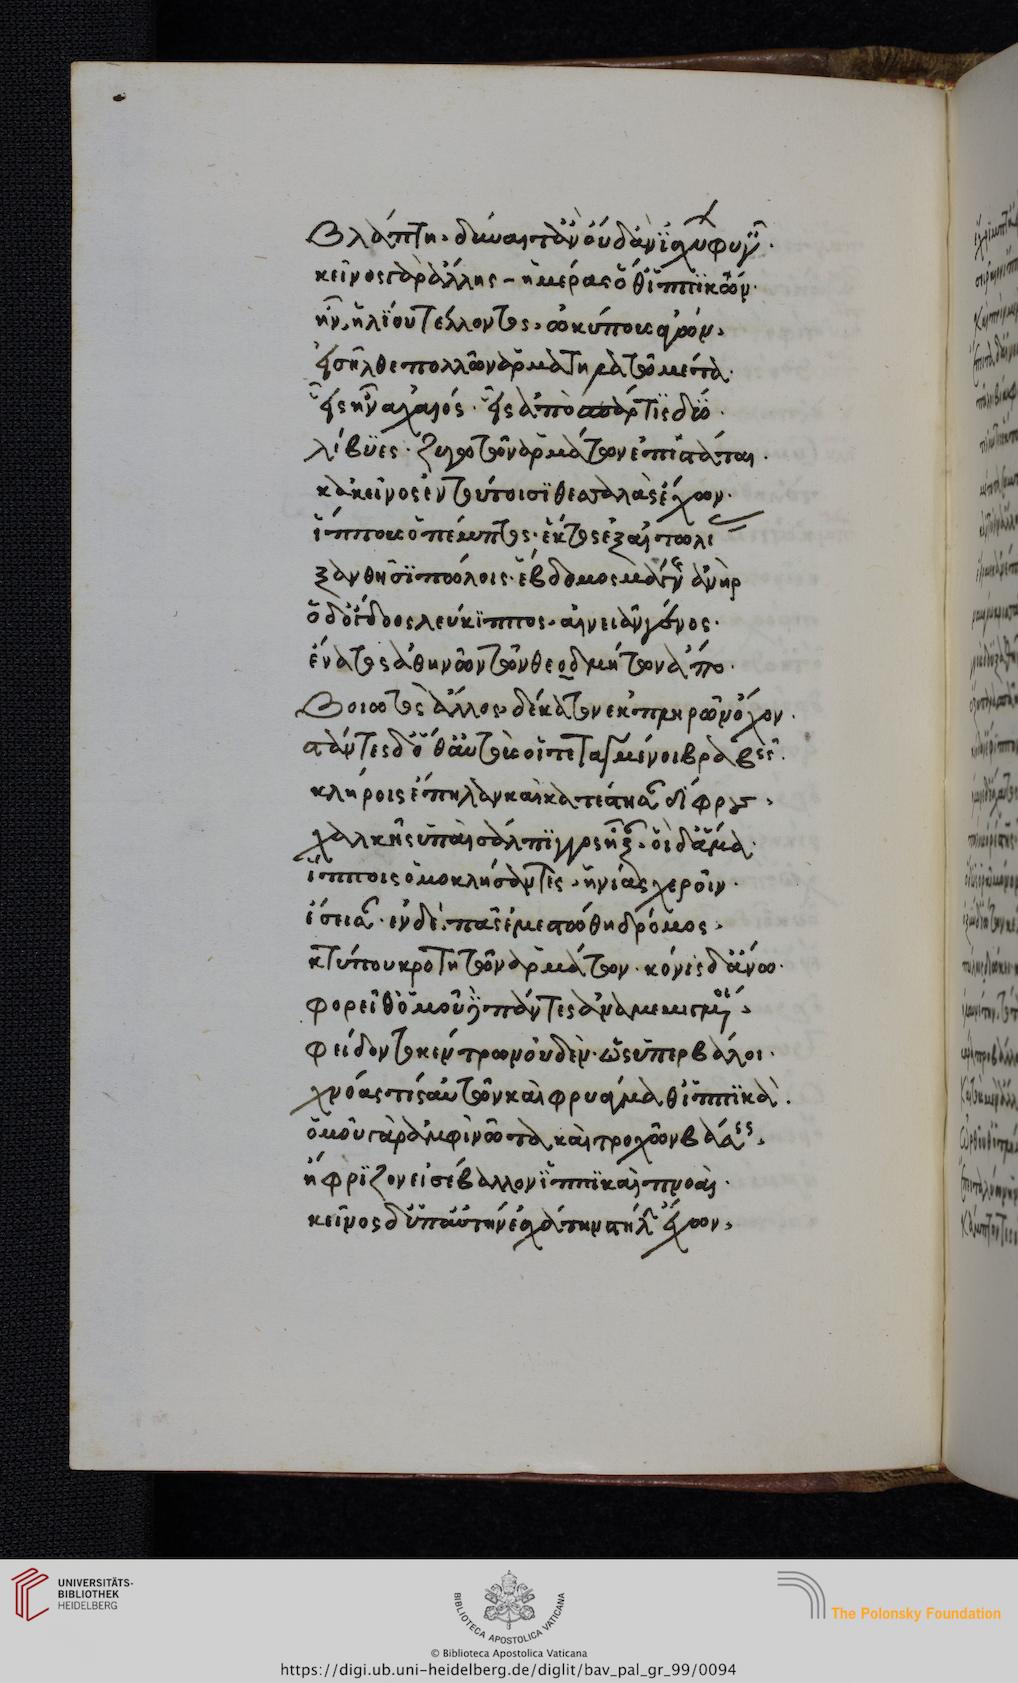 βλάπτη· δύναιτ' ἂν οὐδ' ἂν ἰσχύων φυγεῖν·
κεῖνος γὰρ ἄλλης ἡμέρας ὅθ' ἱππικῶν·
ἦν ἡλίου τέλλοντος ὠκύπους ἀγών·
εἰσῆλθε πολλῶν ἁρματηλατῶν μέτα·
εἷς ἦν ἀχαιός· εἷς ἀπὸ σπάρτης δύο·
λίβυες· ζυγωτῶν ἁρμάτων ἐπιστάται·
κἀκεῖνος ἐν τούτοισι θεσσαλὰς ἔχων·
ἵππους ὁ πέμπτος· ἕκτος ἐξ αἰτωλί
ξανθῆσι πώλοις· ἕβδομος μάγνης ἀνὴρ
ὁ δ' ὄγδοος λεύκιππος· αἰνειὰν γένος·
ἔνατος ἀθηνῶν τῶν θεοδμήτων ἄπο·
βοιωτὸς ἄλλος δέκατον ἐκπληρῶν ὄχον·
στάντες δ' ὅθ' αὐτοὺς οἱ τεταγμένοι βραβεῖς·
κλήροις ἔπηλαν καὶ κατέστησαν δίφρους·
χαλκῆς ὑπαὶ σάλπιγγος ᾖξαν· οἱ δ' ἅμα·
ἵπποις ὁμοκλήσαντες ἡνίας χεροῖν·
ἔσεισαν· ἐν δὲ πᾶς ἐμεστώθη δρόμος·
κτύπου κροτητῶν ἁρμάτων· κόνις δ' ἄνω·
φορεῖθ' ὁμοῦ δὲ πάντες ἀναμεμιγμένοι·
φείδοντο κέντρων οὐδέν· ὡς ὑπερβάλοι·
χνόας τις αὐτῶν καὶ φρυάγμαθ' ἱππικά·
ὁμοῦ γὰρ ἀμφὶ νῶτα καὶ τροχῶν βάσεις·
ἤφριζον εἰσέβαλλον ἱππικαὶ πνοαί·
κεῖνος δ' ὑπ' αὐτὴν ἐσχάτην στήλην ἔχων·
UNIVERSITÄTS-
BIBLIOTHEK
HEIDELBERG
BIBLIOTECA APOSTOLICA VATICANA
The Polonsky Foundation
© Biblioteca Apostolica Vaticana
https://digi.ub.uni-heidelberg.de/diglit/bav_pal_gr_99/0094